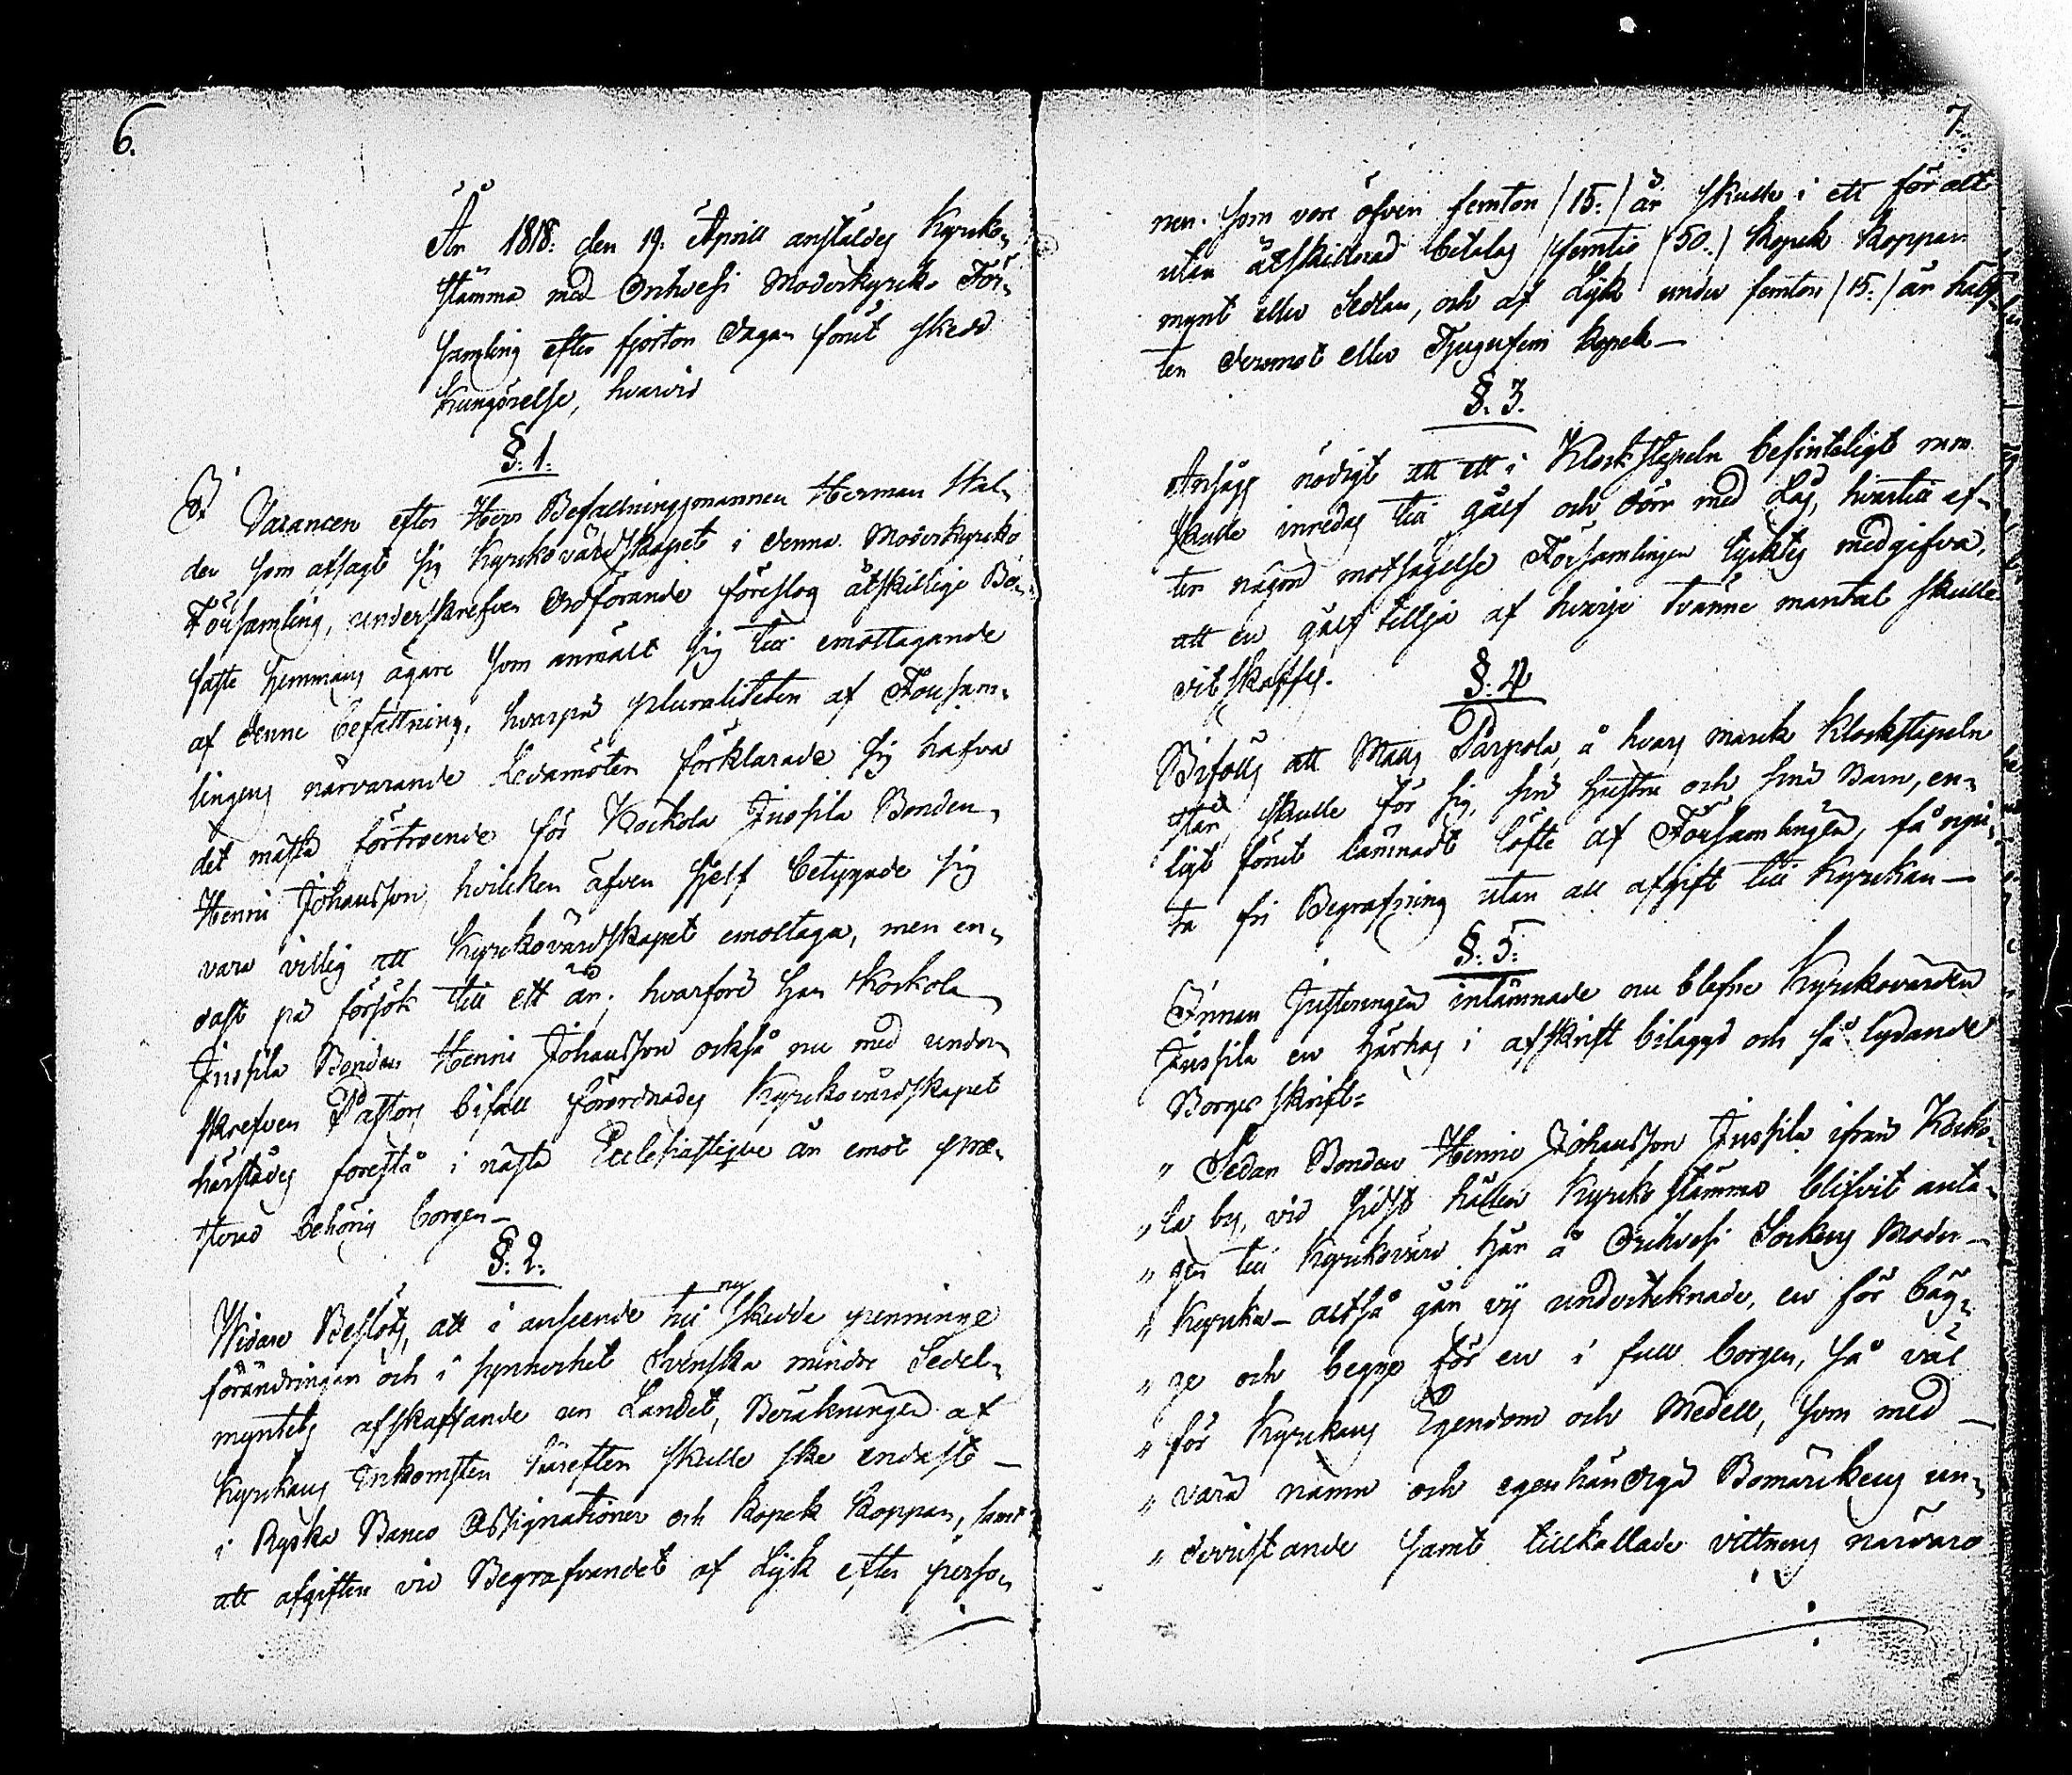 6.
År 1818. den 19. Aprill anstäldes Kyrko-
stämma med Orihvesi Moderkyrko För-
samling efter fjorton dagar förut skedd
Kungörelse, hvarvid
§. 1.
I Vacancen efter Herr Befallningsmannen Herman Wal-
der som afsagt sig kyrkovärdskapet i denna Moderkyrko
Församling, underskrefven Ordförande föreslog åtskillige Bo-
faste Hemmans ägare som anmält sig till emottagande
af denne befattning, hvarpå pluraliteten af Försam-
lingens närvarande Ledamöten förklarade sig hafva
det mästa förtroende för Kockola Jussila Bonden
Henric Johansson, hvilcken äfven sjelf betygade sig
vara villig att Kyrckovärdskapet emottaga, men en-
dast på försök till ett år; hvarföre han Kockola
Jussila Bonden Henric Johansson också nu med under-
skrefven Pastors bifall förordnades Kyrckovärdskapet
härstädes förestå i nästa Ecclesiastique år emot præ-
sterad behörig borgen —
§. 2.
Widare Beslöts, att i anseende till ny skedde penninge
förändringen och i synnerhet Svenska mindre Sedel-
myntets afskaffande ur Landet, Beräkningen af
Kyrckans Inkomsten härefter skulle ske endast —
i Ryska Banco Assignationer och Kopek Koppar, samt
att afgiften vid Begrafvandet af Lijk efter perso-
7.
nen. som vore öfver femton /15:/ år skulle i ett för alt
utan åtskillnad betalas femtio /50./ Kopek Koppar
mynt eller Sedlar, och af Lijk under femton /15:/ år hälf-
ten deremot eller Tjugufem Kopek —
§. 3.
Ansågs nödigt att ett i Klockstapeln befinteligt rum
skulle inredas till gålf och dörr med Lås, hvartill ef-
ter någon motsägelse Församlingen tycktes medgifva,
att en gålf tillja af hvarje tvänne mantal skulle
dit skaffas.
§. 4
Biföll att Matts Parpola, å hvars marck Klockstapeln
står skulle för sig, sin hustru och sine Barn, en-
ligt förut lämnadt löfte af Församlingen, få njut-
ta fri Begrafning utan all afgift till Kyrckan —
§. 5.
Innan Justeringen inlämnade nu blefne Kyrckovärden
Jussila en härhos i afskrift bilaggd och så lydande
Borges skrift=
" Sedan Bonden Henric Johansson Jussila ifrån Kocko-
" la by, vid sidst hållen Kyrcko stämma blifvit anta-
" gen till Kyrckovärd här å Orihvesi Sockens Moder —
" Kyrcka — altså gån vij undertecknade, en för bäg-
" ge och begge för en i full borgen, så väl
" för Kyrckans Egendom och Medell, som med —
" våra namn och egenhändiga Bomärckens un-
" derristande samt tillkallade vittnens närvaro